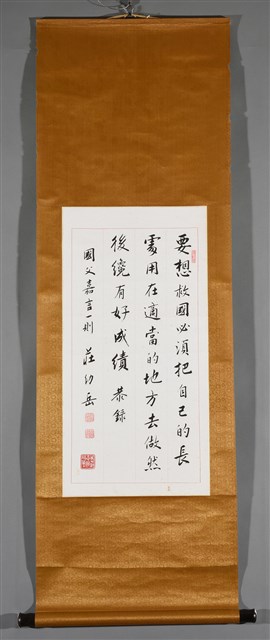 要想救國必須把自己的長
處用在適當的地方去做然
後纔有好成績 恭錄
國父嘉言一則 莊幼岳